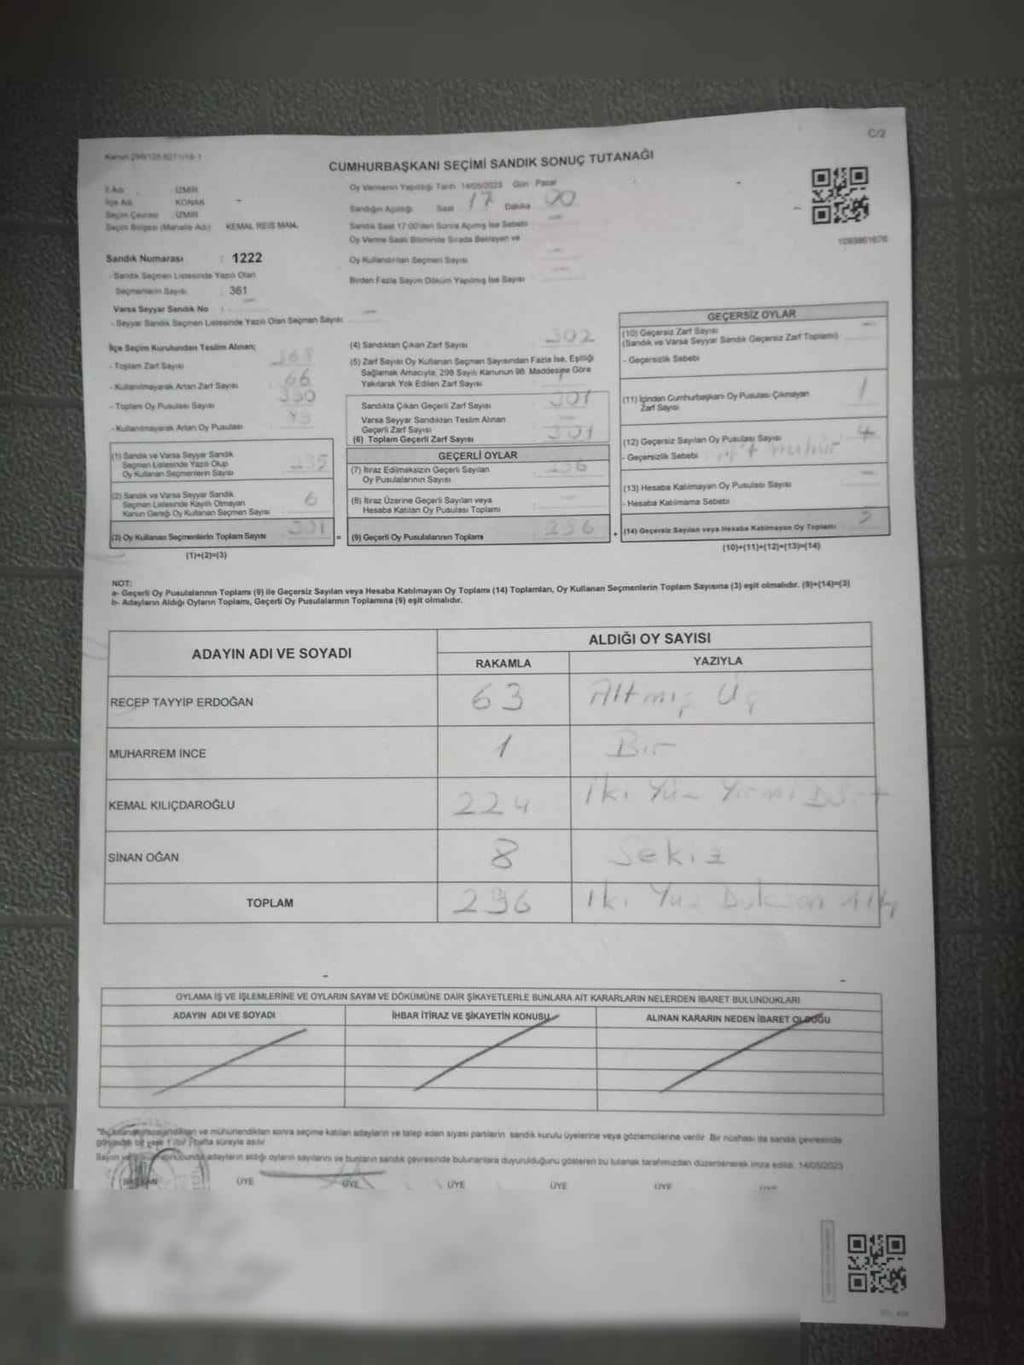 C/2
CUMHURBAŞKANI SEÇİMİ SANDIK SONUÇ TUTANAĞI
İl Adı : İZMİR
İlçe Adı : KONAK
Seçim Çevresi : İZMİR
Seçim Bölgesi (Mahalle Adı) : KEMAL REİS MAH.
Oy Vermenin Yapıldığı Tarih 14/05/2023 Gün Pazar
Sandığın Açıldığı Saat 17 Dakika 00
Sandık Saat 17:00'den Sonra Açılmış İse Sebebi
Oy Verme Saati Bitiminde Sırada Bekleyen ve
Oy Kullandırılan Seçmen Sayısı
Birden Fazla Sayım Döküm Yapılmış İse Sayısı
Sandık Numarası : 1222
- Sandık Seçmen Listesinde Yazılı Olan
Seçmenlerin Sayısı : 361
Varsa Seyyar Sandık No :
- Seyyar Sandık Seçmen Listesinde Yazılı Olan Seçmen Sayısı:
İlçe Seçim Kurulundan Teslim Alınan;
- Toplam Zarf Sayısı
- Kullanılmayarak Artan Zarf Sayısı 66
- Toplam Oy Pusulası Sayısı
- Kullanılmayarak Artan Oy Pusulası
(1) Sandık ve Varsa Seyyar Sandık
Seçmen Listesinde Yazılı Olup
Oy Kullanan Seçmenlerin Sayısı
(2) Sandık ve Varsa Seyyar Sandık
Seçmen Listesinde Kayıtlı Olmayan
Kanun Gereği Oy Kullanan Seçmen Sayısı 6
(3) Oy Kullanan Seçmenlerin Toplam Sayısı
(1)+(2)=(3)
(4) Sandıktan Çıkan Zarf Sayısı 302
(5) Zarf Sayısı Oy Kullanan Seçmen Sayısından Fazla İse, Eşitliği
Sağlamak Amacıyla, 298 Sayılı Kanunun 98. Maddesine Göre
Yakılarak Yok Edilen Zarf Sayısı
Sandıkta Çıkan Geçerli Zarf Sayısı 301
Varsa Seyyar Sandıktan Teslim Alınan
Geçerli Zarf Sayısı
(6) Toplam Geçerli Zarf Sayısı 301
GEÇERLİ OYLAR
(7) İtiraz Edilmeksizin Geçerli Sayılan
Oy Pusulalarının Sayısı
(8) İtiraz Üzerine Geçerli Sayılan veya
Hesaba Katılan Oy Pusulası Toplamı
= (9) Geçerli Oy Pusulalarının Toplamı 296
GEÇERSİZ OYLAR
(10) Geçersiz Zarf Sayısı
(Sandık ve Varsa Seyyar Sandık Geçersiz Zarf Toplamı)
- Geçersizlik Sebebi
(11) İçinden Cumhurbaşkanı Oy Pusulası Çıkmayan
Zarf Sayısı 1
(12) Geçersiz Sayılan Oy Pusulası Sayısı 4
- Geçersizlik Sebebi
(13) Hesaba Katılmayan Oy Pusulası Sayısı
- Hesaba Katılmama Sebebi
+ (14) Geçersiz Sayılan veya Hesaba Katılmayan Oy Toplamı 5
(10)+(11)+(12)+(13)=(14)
NOT:
a- Geçerli Oy Pusulalarının Toplamı (9) ile Geçersiz Sayılan veya Hesaba Katılmayan Oy Toplamı (14) Toplamları, Oy Kullanan Seçmenlerin Toplam Sayısına (3) eşit olmalıdır. (9)+(14)=(3)
b- Adayların Aldığı Oyların Toplamı, Geçerli Oy Pusulalarının Toplamına (9) eşit olmalıdır.
ADAYIN ADI VE SOYADI
ALDIĞI OY SAYISI
RAKAMLA YAZIYLA
RECEP TAYYİP ERDOĞAN 63 Altmış Üç
MUHARREM İNCE 1 Bir
KEMAL KILIÇDAROĞLU 224 İki Yüz Yirmi Dört
SİNAN OĞAN 8 Sekiz
TOPLAM 296 İki Yüz Altı
OYLAMA İŞ VE İŞLEMLERİNE VE OYLARIN SAYIM VE DÖKÜMÜNE DAİR ŞİKAYETLERLE BUNLARA AİT KARARLARIN NELERDEN İBARET BULUNDUKLARI
ADAYIN ADI VE SOYADI İHBAR İTİRAZ VE ŞİKAYETİN KONUSU ALINAN KARARIN NEDEN İBARET OLDUĞU
ve mühürlendikten sonra seçime katılan adayların ve talep eden siyasi partilerin sandık kurulu üyelerine veya gözlemcilerine verilir. Bir nüshası da sandık çevresinde
hafta süreyle asılır.
adayların aldığı oyların sayılarını ve bunların sandık çevresinde bulunanlara duyurulduğunu gösteren bu tutanak tarafımızdan düzenlenerek imza edildi. 14/05/2023
BAŞKAN ÜYE ÜYE ÜYE ÜYE ÜYE